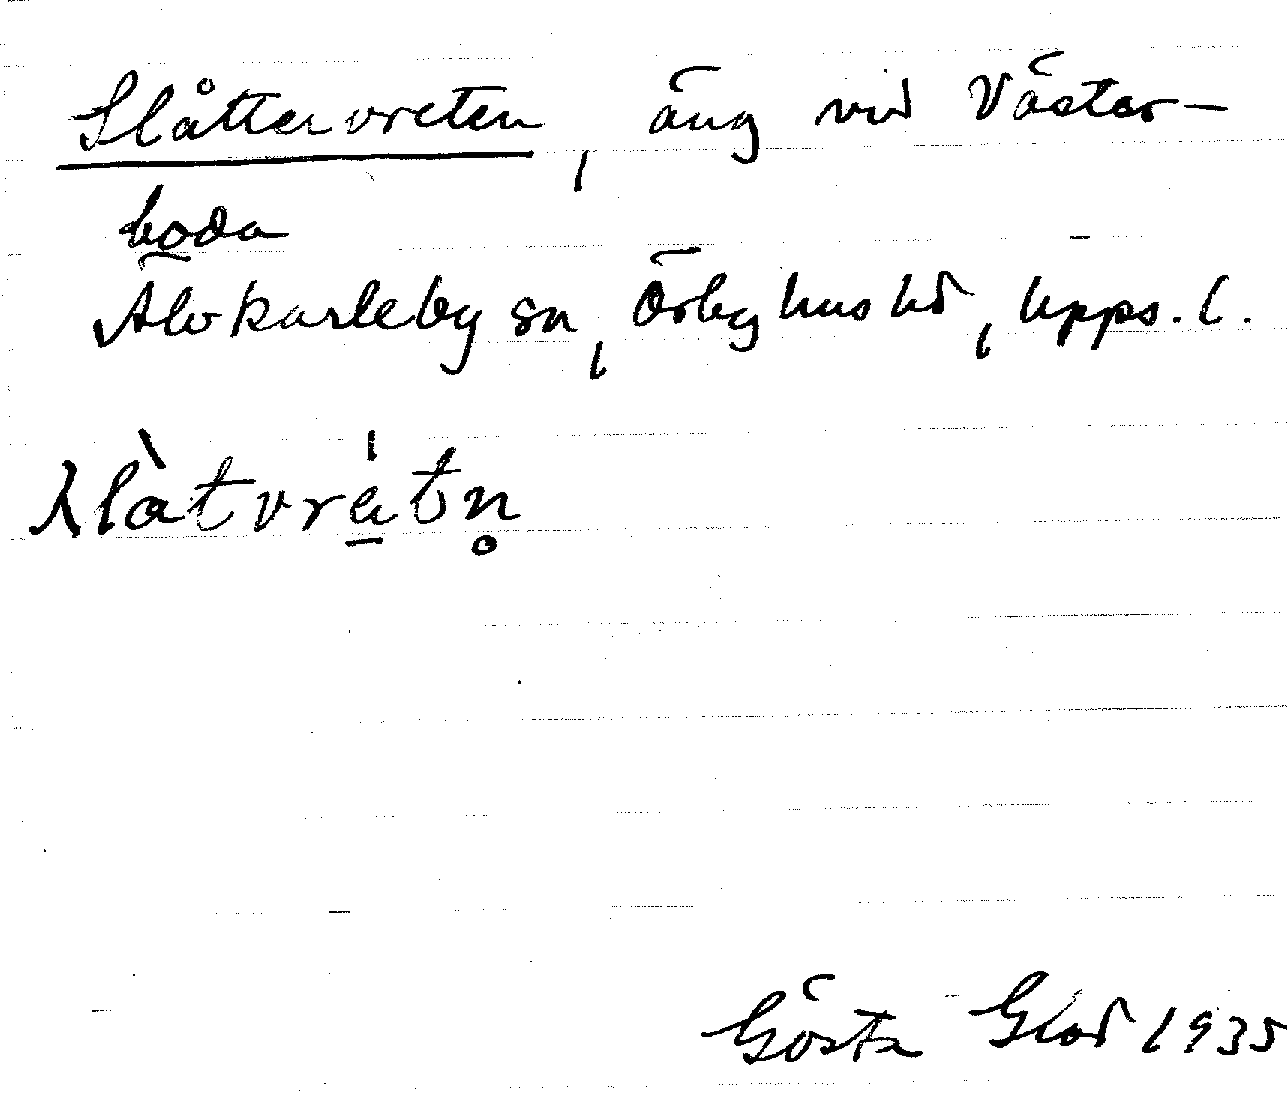 Slåttervreten, äng vid Väster-
boda
Älvkarleby sn, Örbyhus hd, Upps. l.
slàtvra̱̍tn̥
Gösta Glad 1935